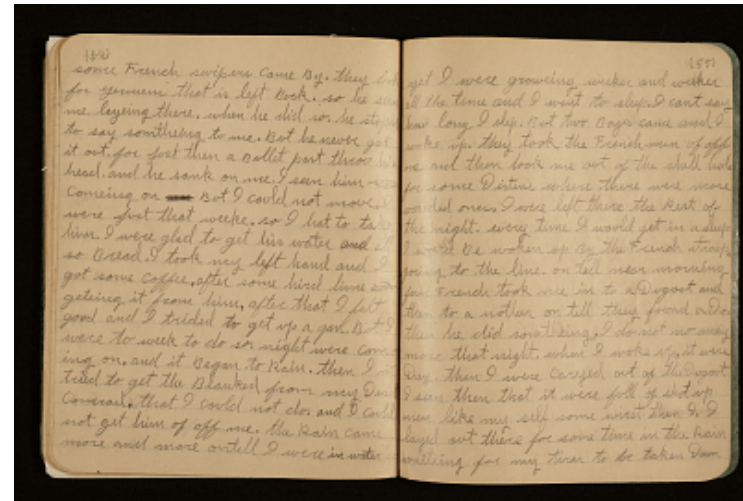 (54)
some French swipers came By. they look
for germem that is left Back. so he seen
me layeing there. when he did so. he stoped
to say somtheing to me. But he never got
it out. for just then a Bullet past throw his
head. and he sank on me. I seen him
comeing on But I could not move. I
were just that weeke. so I hat to take
him. I were glad to get his water and
so Bread. I took my left hand and I
got some coffee, after some hird time
geteing it frome him, after that I felt
good and I trided to get up a gan. But I
were to week to do so. night were com
ing on. and it Began to Rain. then I
tried to get the Blanked from my Dead
Comerad. that I could not do. and I could
not get him of off me. the Rain came
more and more ontell I were in water
(55)
yet I were groweing weeker and weeker
all the time and I went to sleep. I cant say
how long I slep. But two Boys came and I
woke up. they took the French man of off
me and then took me out of the shell hole
for some Distins where there were more
wonded ones. I were left there the Rest of
the night. every time I would get in a sleep
I would Be woken up By the French troops
going to the line. on tell near morning
for French took me in to a Dugoot and
than to a nother on tell they found a Doc
then he did somtheing. I do not no eney
more that night. when I woke up. it were
Day. then I were carryed out of the Dugoot
I seen then that it were full of shot up
men like my self some worst then I. I
layed out there for some time in the Rain
waitteing for my tirn to be taken Dow